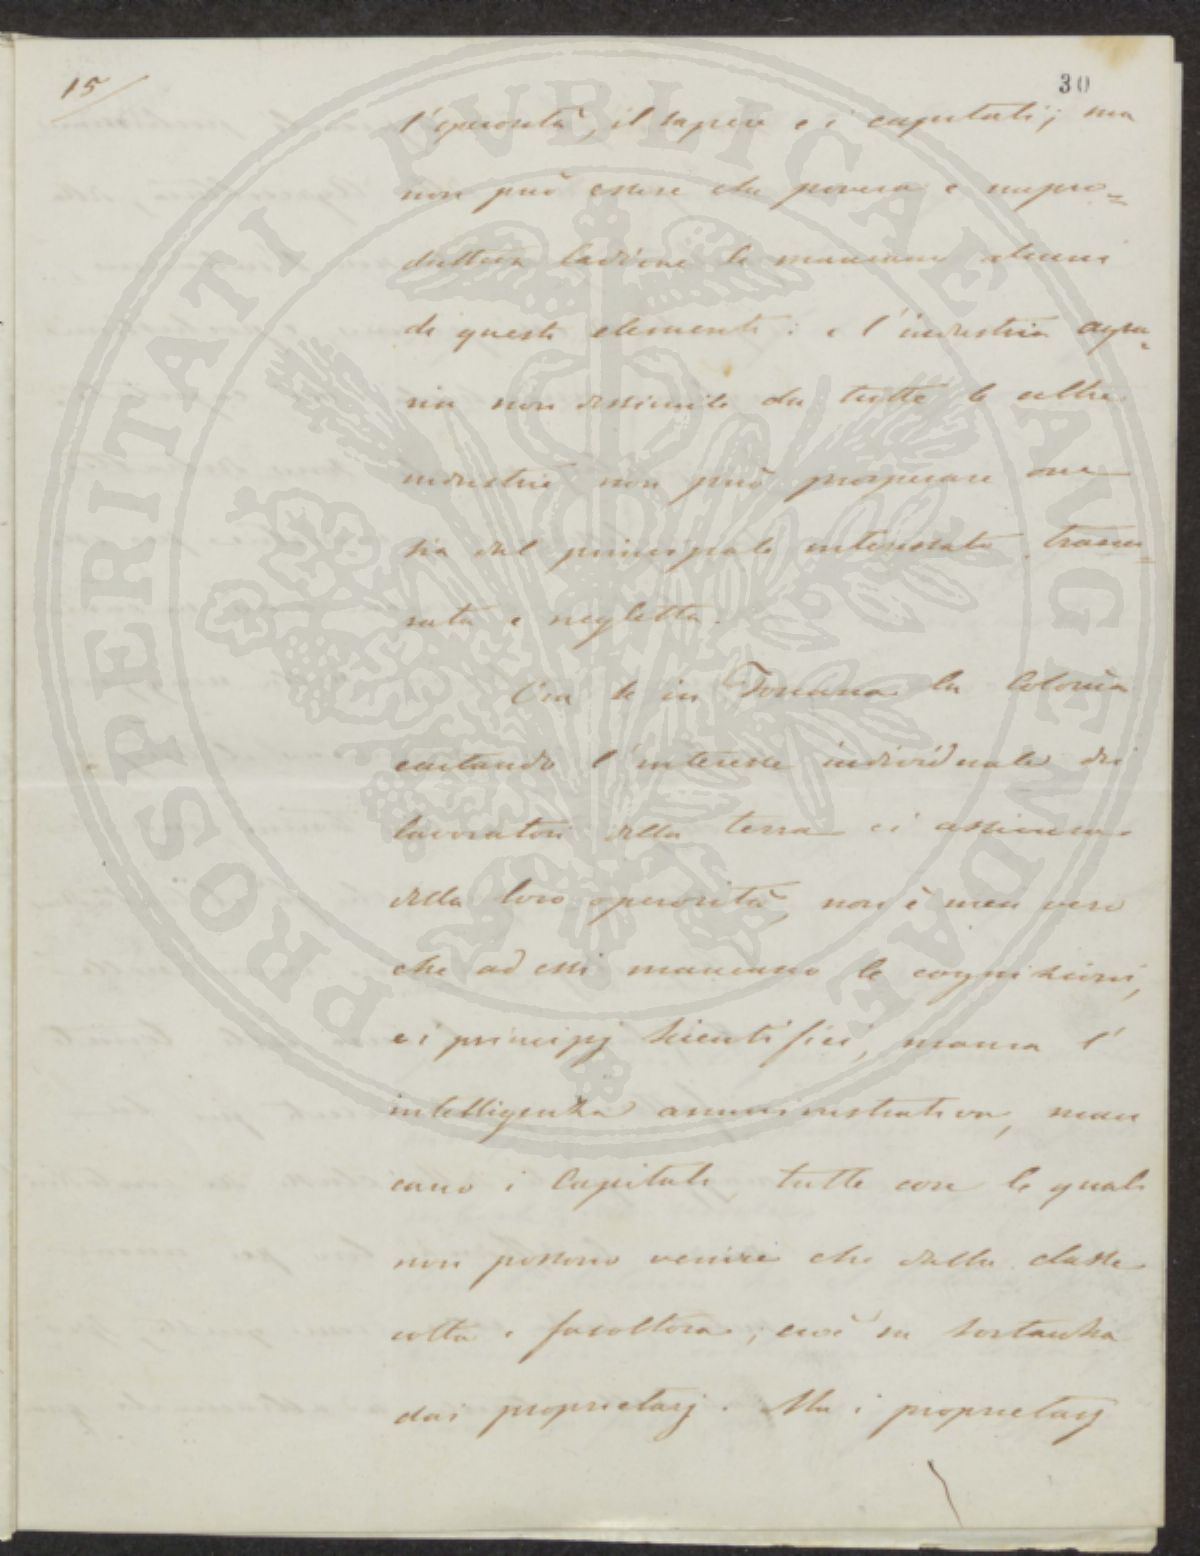 15
30
l'operosità, il sapere e i capitali; ma
non può essere che povera e impro=
duttiva laddove le mancano alcuni
di questi elementi: e l'industria agra=
ria non dissimile da tutte le altre
industrie non può prosperare ove
sia dal principale interessato trascu=
rata e negletta.
Ora se in Toscana la Colonia
eccitando l'interesse individuale dei
lavoratori della terra ci assicura
della loro operosità, non è men vero
che ad essi mancano le cognizioni,
e i principj scientifici, manca l'
intelligenza amministrativa, man
cano i Capitali, tutte cose le quali
non possono venire che dalla classe
colta e facoltosa; cioè in sostanza
dai proprietarj. Ma i proprietarj
PROSPERITATI PVBLICAE AVGENDAE